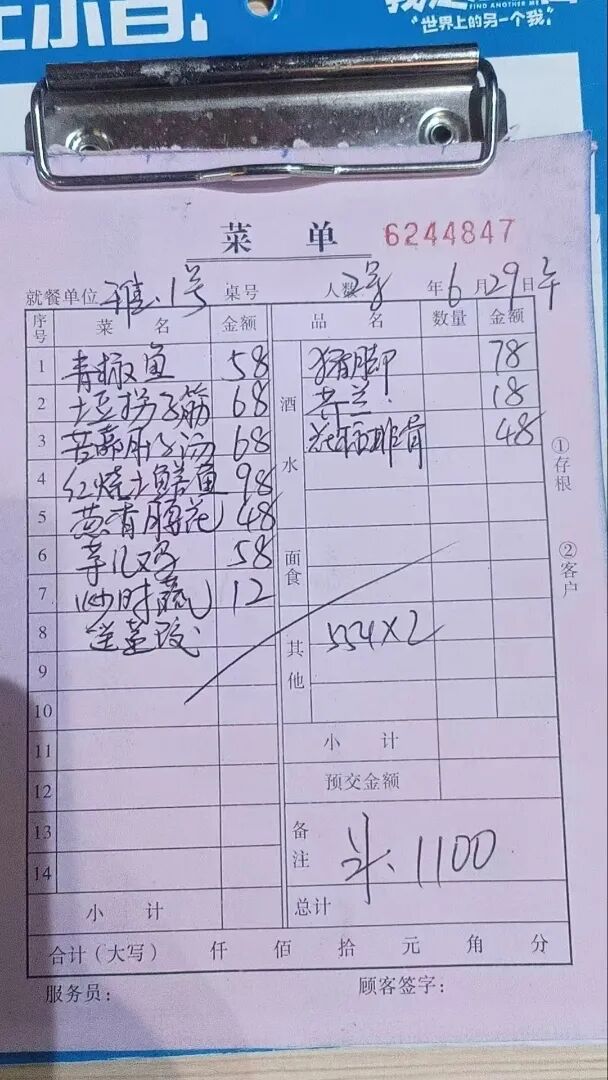 FIND ANOTHER ME
"世界上的另一个我"
菜 单 6244847
就餐单位 雅1号 桌号 人数 2号 年 6 月 29 日 午
序号 菜 名 金额 品 名 数量 金额
1 青椒鱼 58 猪脚 78
2 土豆拐子筋 68 酒水 芥兰 18
3 68 排骨 48
4 红烧土鲜鱼 98
5 葱香腰花 48
6 58 面食
7 炒时蔬 12
8 送 其他 554×2
9
10
11 小 计
12 预交金额
13 备注 1100
14
小 计 总计
合计（大写） 仟 佰 拾 元 角 分
服务员： 顾客签字：
①存根
②客户